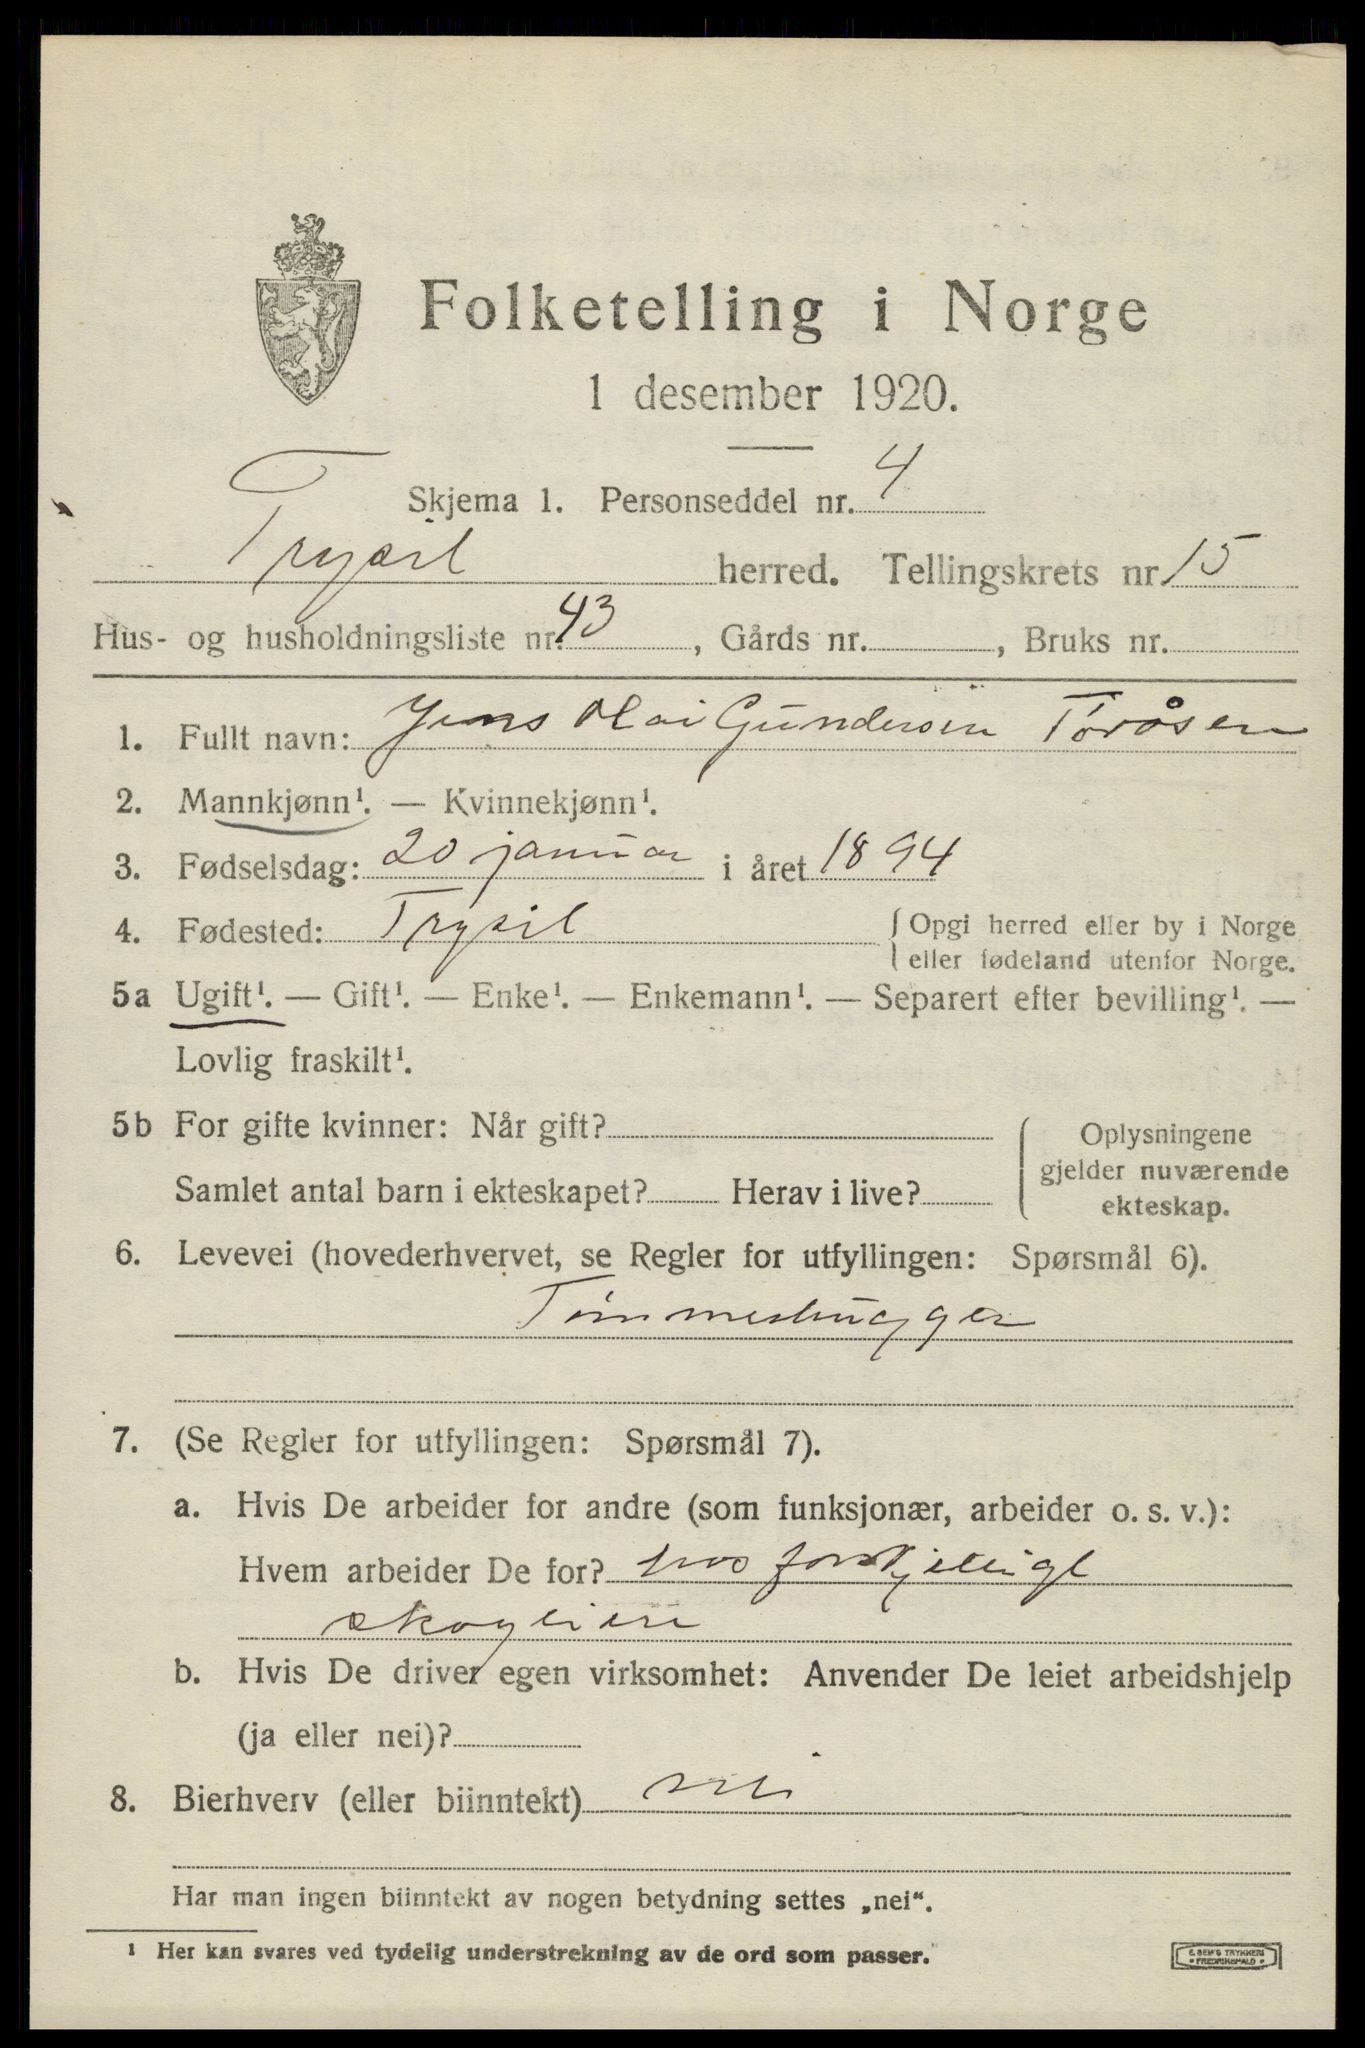 Folketelling i Norge
1 desember 1920.
Skjema 1. Personseddel nr. 4
Trysil herred. Tellingskrets nr 15
Hus- og husholdningsliste nr. 43, Gårds nr. , Bruks nr.
1. Fullt navn: Jens Olai Gundersen Toråsen
2. Mannkjønn¹. — Kvinnekjønn¹.
3. Fødselsdag: 20 januar i året 1894
4. Fødested: Trysil { Opgi herred eller by i Norge
eller fødeland utenfor Norge.
5a Ugift¹. — Gift¹. — Enke¹. — Enkemann¹. — Separert efter bevilling¹. —
Lovlig fraskilt¹.
5b For gifte kvinner: Når gift?
Samlet antal barn i ekteskapet? Herav i live?
Oplysningene
gjelder nuværende
ekteskap.
6. Levevei (hovederhvervet, se Regler for utfyllingen: Spørsmål 6).
Tømmerhugger
7. (Se Regler for utfyllingen: Spørsmål 7).
a. Hvis De arbeider for andre (som funksjonær, arbeider o. s. v.):
Hvem arbeider De for? hos forskjellige
skogeiere
b. Hvis De driver egen virksomhet: Anvender De leiet arbeidshjelp
(ja eller nei)?
8. Bierhverv (eller biinntekt) nei
Har man ingen biinntekt av nogen betydning settes „nei“.
¹ Her kan svares ved tydelig understrekning av de ord som passer.
E. SEM'S TRYKKERI
FREDRIKSHALD